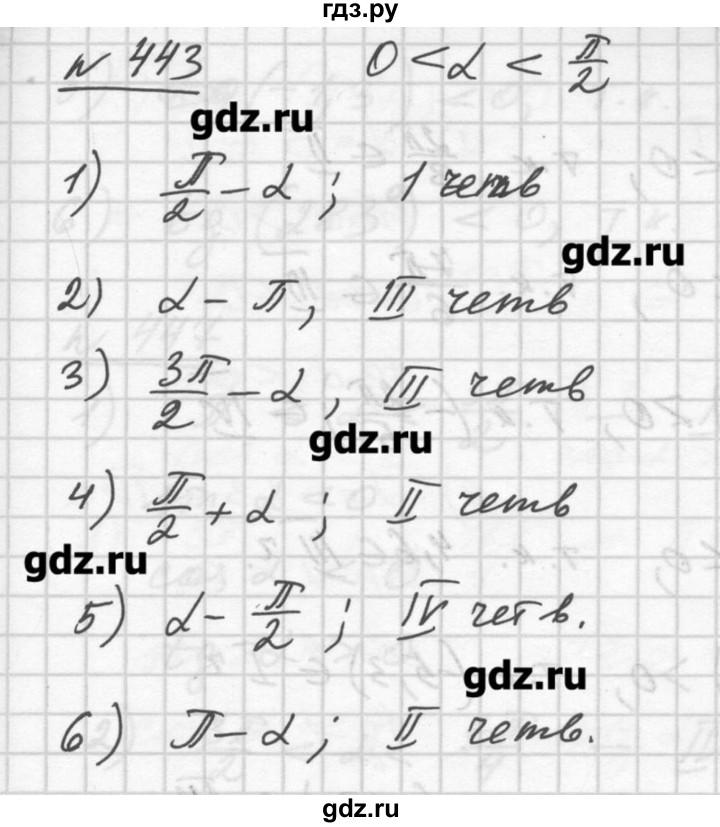 гдз.ру
№ 443 0 < α < π/2
gdz.ru
1) π/2 - α ; 1 четв
gdz.ru
2) α - π, III четв
3) 3π/2 - α, III четв
gdz.ru
4) π/2 + α ; II четв
gdz.ru
5) α - π/2 ; IV четв.
gdz.ru
6) π - α ; II четв.
gdz.ru